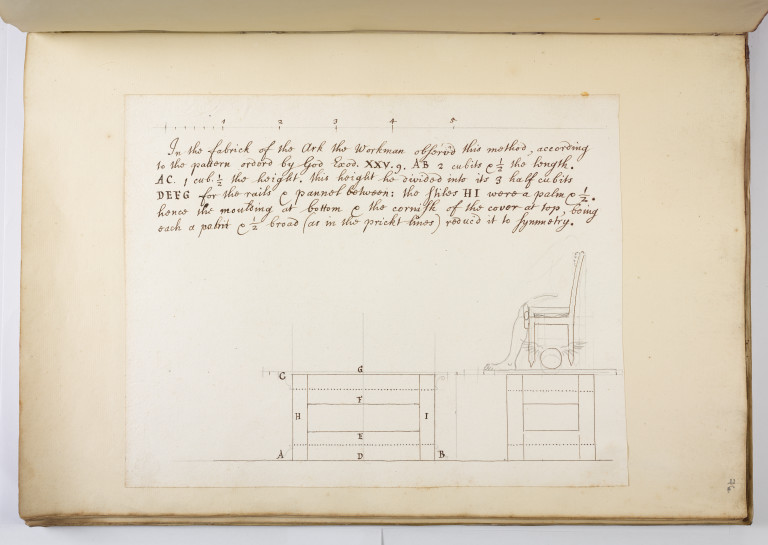 1 2 3 4 5
In the fabrick of the Ark the Workman observd this method, according
to the pattern orderd by God Exod. XXV. 9. AB 2 cubits & ½ the length.
AC. 1 cub. ½ the height. this height he divided into its 3 half cubits
DEFG for the rails & pannel between: the stiles HI were a palm & ½.
hence the moulding at bottom & the cornish of the cover at top, being
each a palm & ½ broad (as in the prickt lines) reducd it to symmetry.
C G
F
H I
E
A D B